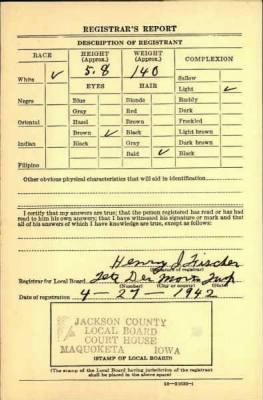 REGISTRAR'S REPORT
DESCRIPTION OF REGISTRANT
RACE HEIGHT (Approx.) WEIGHT (Approx.) COMPLEXION
White ✓ 5.8 140 Sallow
EYES HAIR Light ✓
Negro Blue Blonde Ruddy
Gray Red Dark
Oriental Hazel Brown Freckled
Brown ✓ Black Light brown
Indian Black Gray Dark brown
Bald ✓ Black
Filipino
Other obvious physical characteristics that will aid in identification
I certify that my answers are true; that the person registered has read or has had
read to him his own answers; that I have witnessed his signature or mark and that
all of his answers of which I have knowledge are true, except as follows:
Henry J. Fischer
(Signature of registrar)
Registrar for Local Board
(Number) (City or county) (State)
Date of registration 4-27-1942
JACKSON COUNTY
LOCAL BOARD
COURT HOUSE
MAQUOKETA IOWA
(STAMP OF LOCAL BOARD)
(The stamp of the Local Board having jurisdiction of the registrant
shall be placed in the above space)